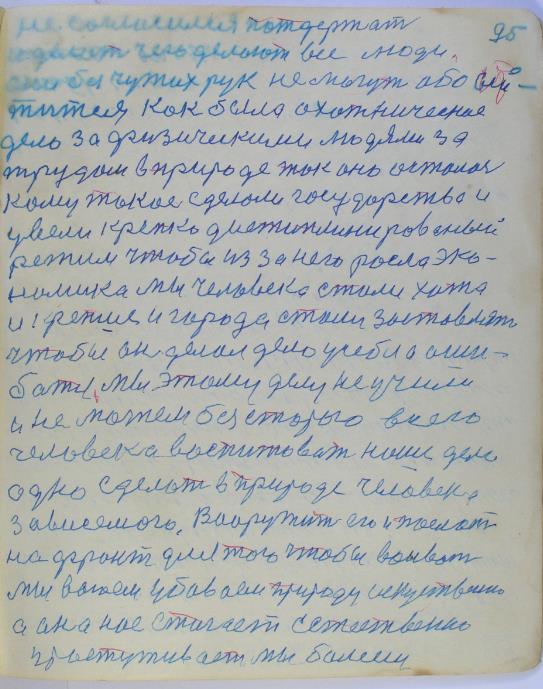 95
не согласился потдержат
и делат чего делают все люди.
она без чужих рук не могут або
титися как была охотническое
дело за физическими людями за
трудом в природе так оно осталося
кому такое сделали государство и
увели крепко дистиплинированый
режим чтобы из за него росла эко-
номика мы человека стали хотя
и города стали заставлять
чтобы он делал дело учебы а оши-
баты, мы этому делу не учили
и не можем без старого всего
человека воспитоват наше дело
одно сделат в природе человека
зависемого. Вооружит его и послат
на фронт для того чтобы воиват
мы воюем убоваем природу искуственно
а она нас стигает естественно
простуживает мы болеем